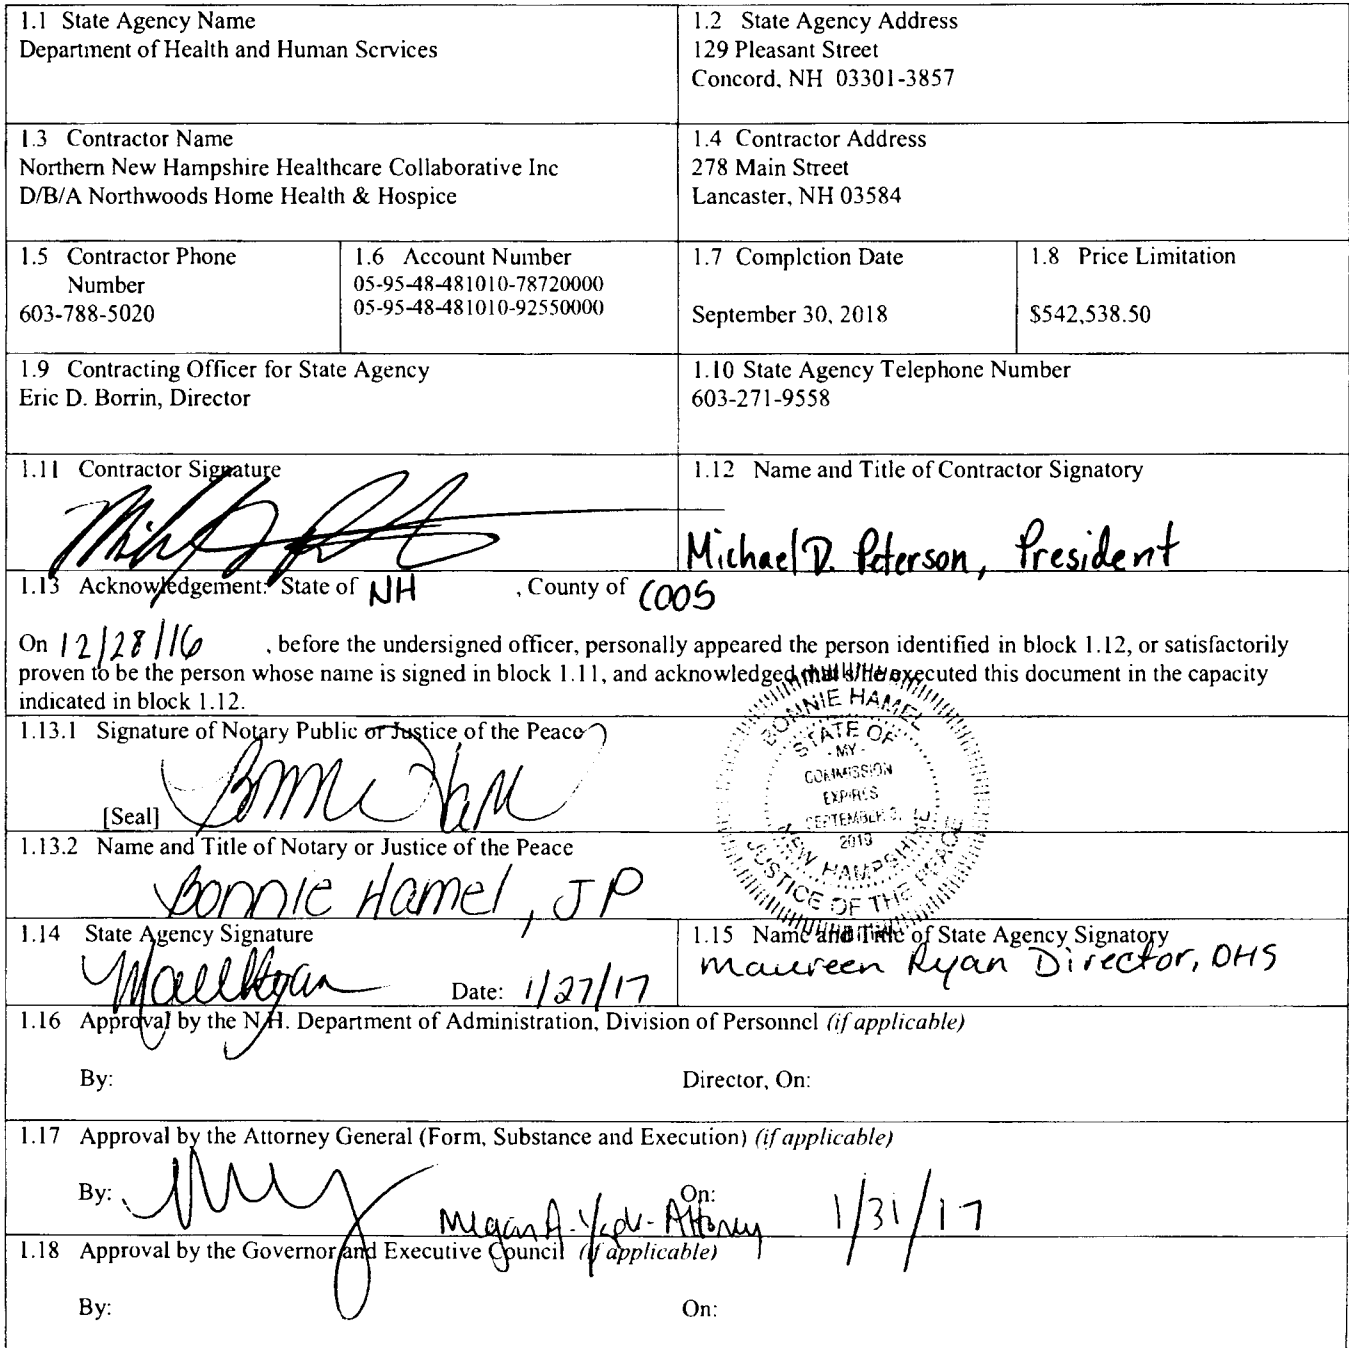 1.1 State Agency Name
Department of Health and Human Services
1.2 State Agency Address
129 Pleasant Street
Concord, NH 03301-3857
1.3 Contractor Name
Northern New Hampshire Healthcare Collaborative Inc
D/B/A Northwoods Home Health & Hospice
1.4 Contractor Address
278 Main Street
Lancaster, NH 03584
1.5 Contractor Phone
Number
603-788-5020
1.6 Account Number
05-95-48-481010-78720000
05-95-48-481010-92550000
1.7 Completion Date
September 30, 2018
1.8 Price Limitation
$542,538.50
1.9 Contracting Officer for State Agency
Eric D. Borrin, Director
1.10 State Agency Telephone Number
603-271-9558
1.11 Contractor Signature
1.12 Name and Title of Contractor Signatory
Michael D. Peterson, President
1.13 Acknowledgement: State of NH , County of COOS
On 12/28/16 , before the undersigned officer, personally appeared the person identified in block 1.12, or satisfactorily
proven to be the person whose name is signed in block 1.11, and acknowledged that s/he executed this document in the capacity
indicated in block 1.12.
1.13.1 Signature of Notary Public or Justice of the Peace
[Seal]
BONNIE HAMEL
STATE OF
- MY -
COMMISSION
EXPIRES
SEPTEMBER 3,
2019
NEW HAMPSHIRE
JUSTICE OF THE PEACE
1.13.2 Name and Title of Notary or Justice of the Peace
Bonnie Hamel, JP
1.14 State Agency Signature
Date: 1/27/17
1.15 Name and Title of State Agency Signatory
Maureen Ryan Director, OHS
1.16 Approval by the N.H. Department of Administration, Division of Personnel (if applicable)
By: Director, On:
1.17 Approval by the Attorney General (Form, Substance and Execution) (if applicable)
By: On: 1/31/17
Megan A. - Attorney
1.18 Approval by the Governor and Executive Council (if applicable)
By: On: